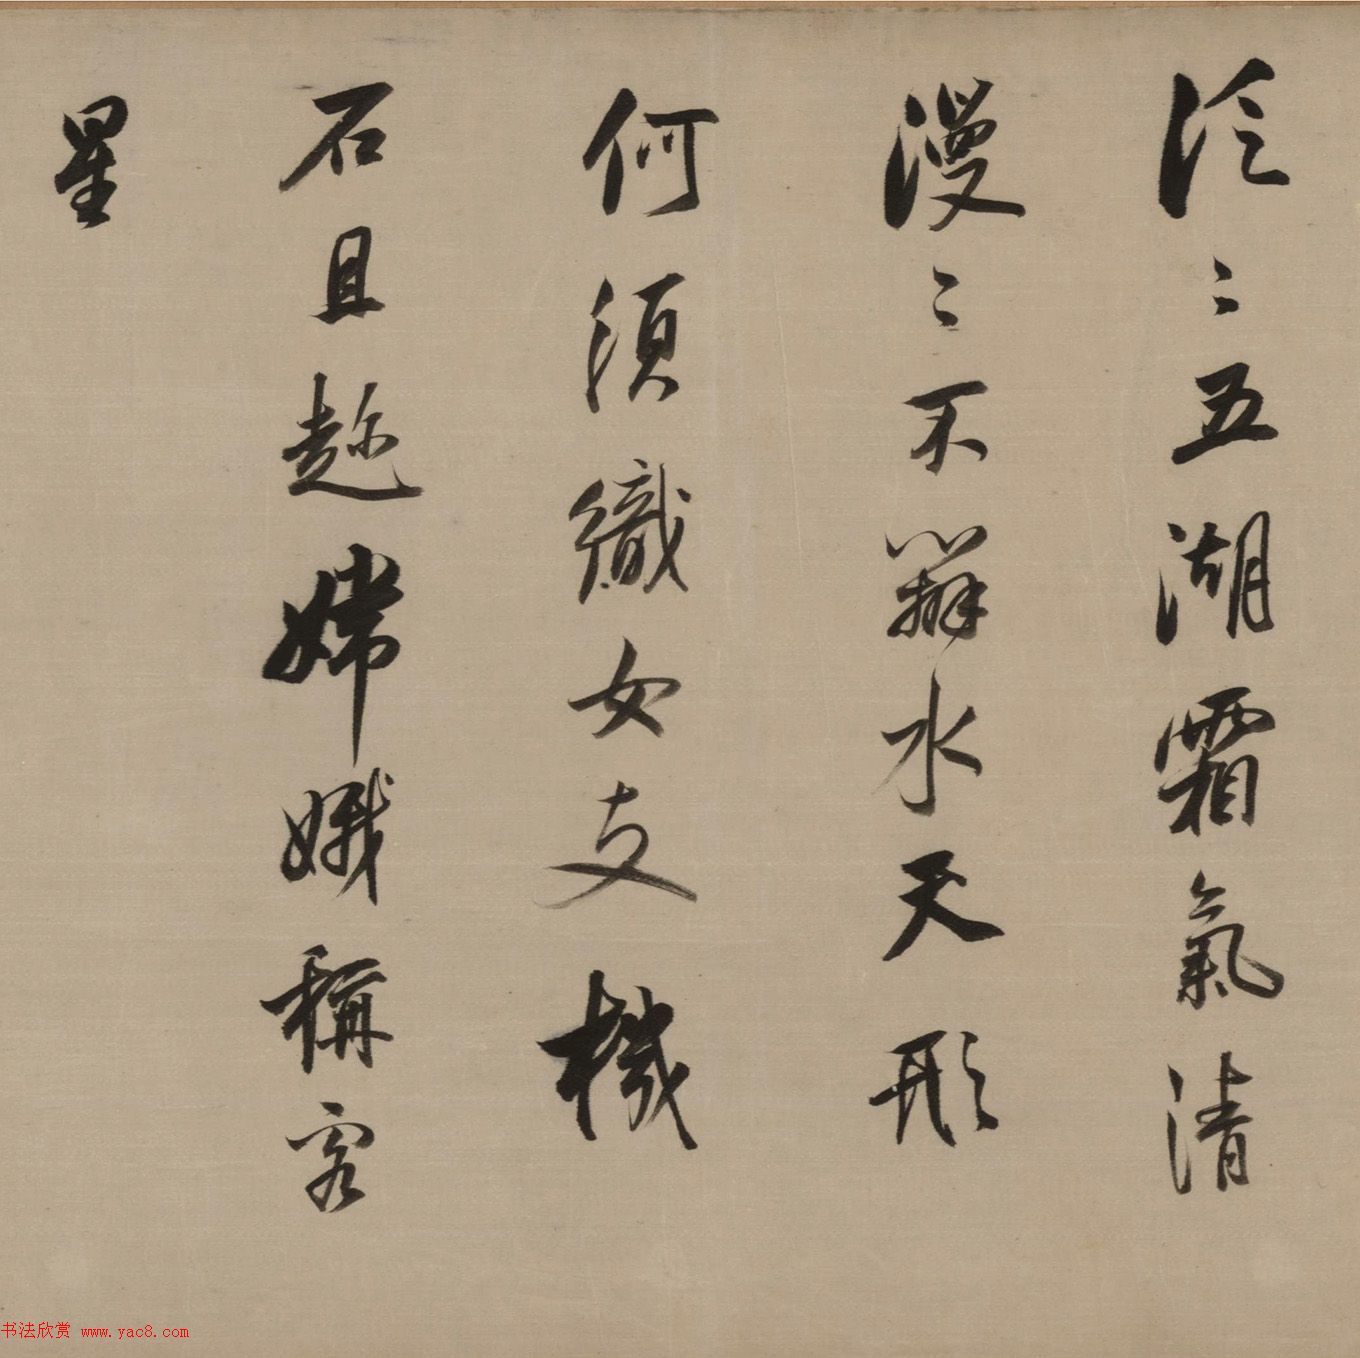 泛〻五湖霜氣清
漫〻不辨水天形
何須織女支機
石且趁嫦娥稱客
星
书法欣赏 www.yac8.com